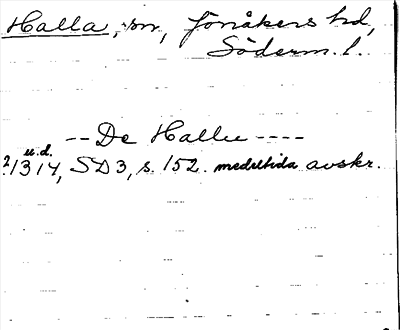 Halla, sn, Jönåkers hd,
Söderm. l.
-- De Hallu ----
u.d.
? 1314, SD 3, s. 152. medeltida avskr.